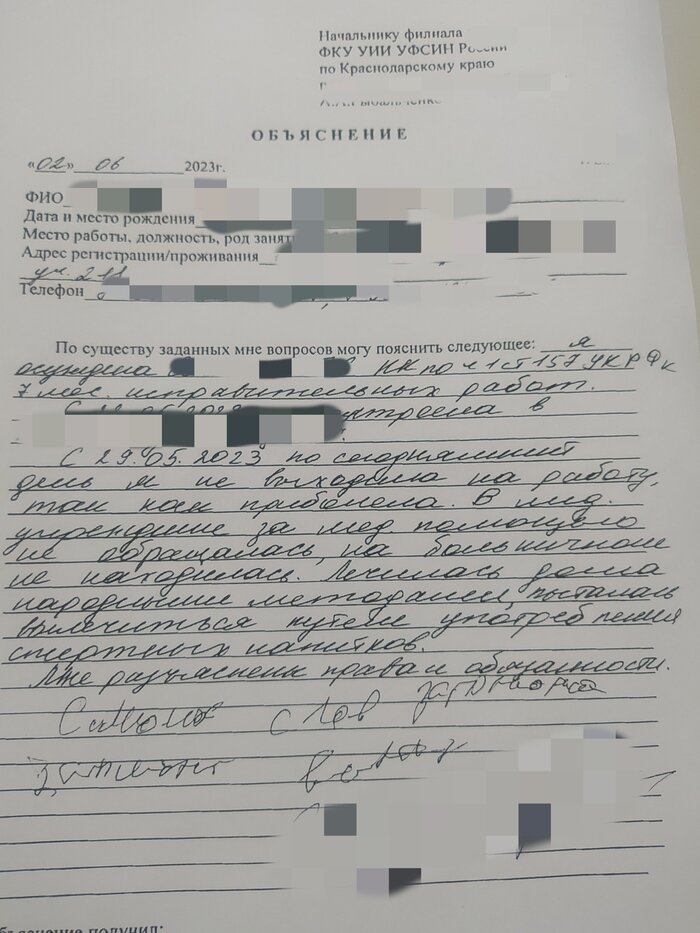 Начальнику филиала
ФКУ УИИ УФСИН России
по Краснодарскому краю
ОБЪЯСНЕНИЕ
«02» 06 2023г.
ФИО
Дата и место рождения
Место работы, должность, род занят
Адрес регистрации/проживания
Телефон
По существу заданных мне вопросов могу пояснить следующее: я
осуждена КК по ч 1 ст 157 УК РФ к
7 мес. исправительных работ.
С в
С 29.05.2023 по сегодняшний
день я не выходила на работу,
так как приболела. В мед.
учреждение за мед. помощью
не обращалась, на больничном
не находилась. Лечилась дома
народными методами, пыталась
вылечиться путем употребления
спиртных напитков.
Мне разъяснены права и обязанности.
С моих слов
получил: